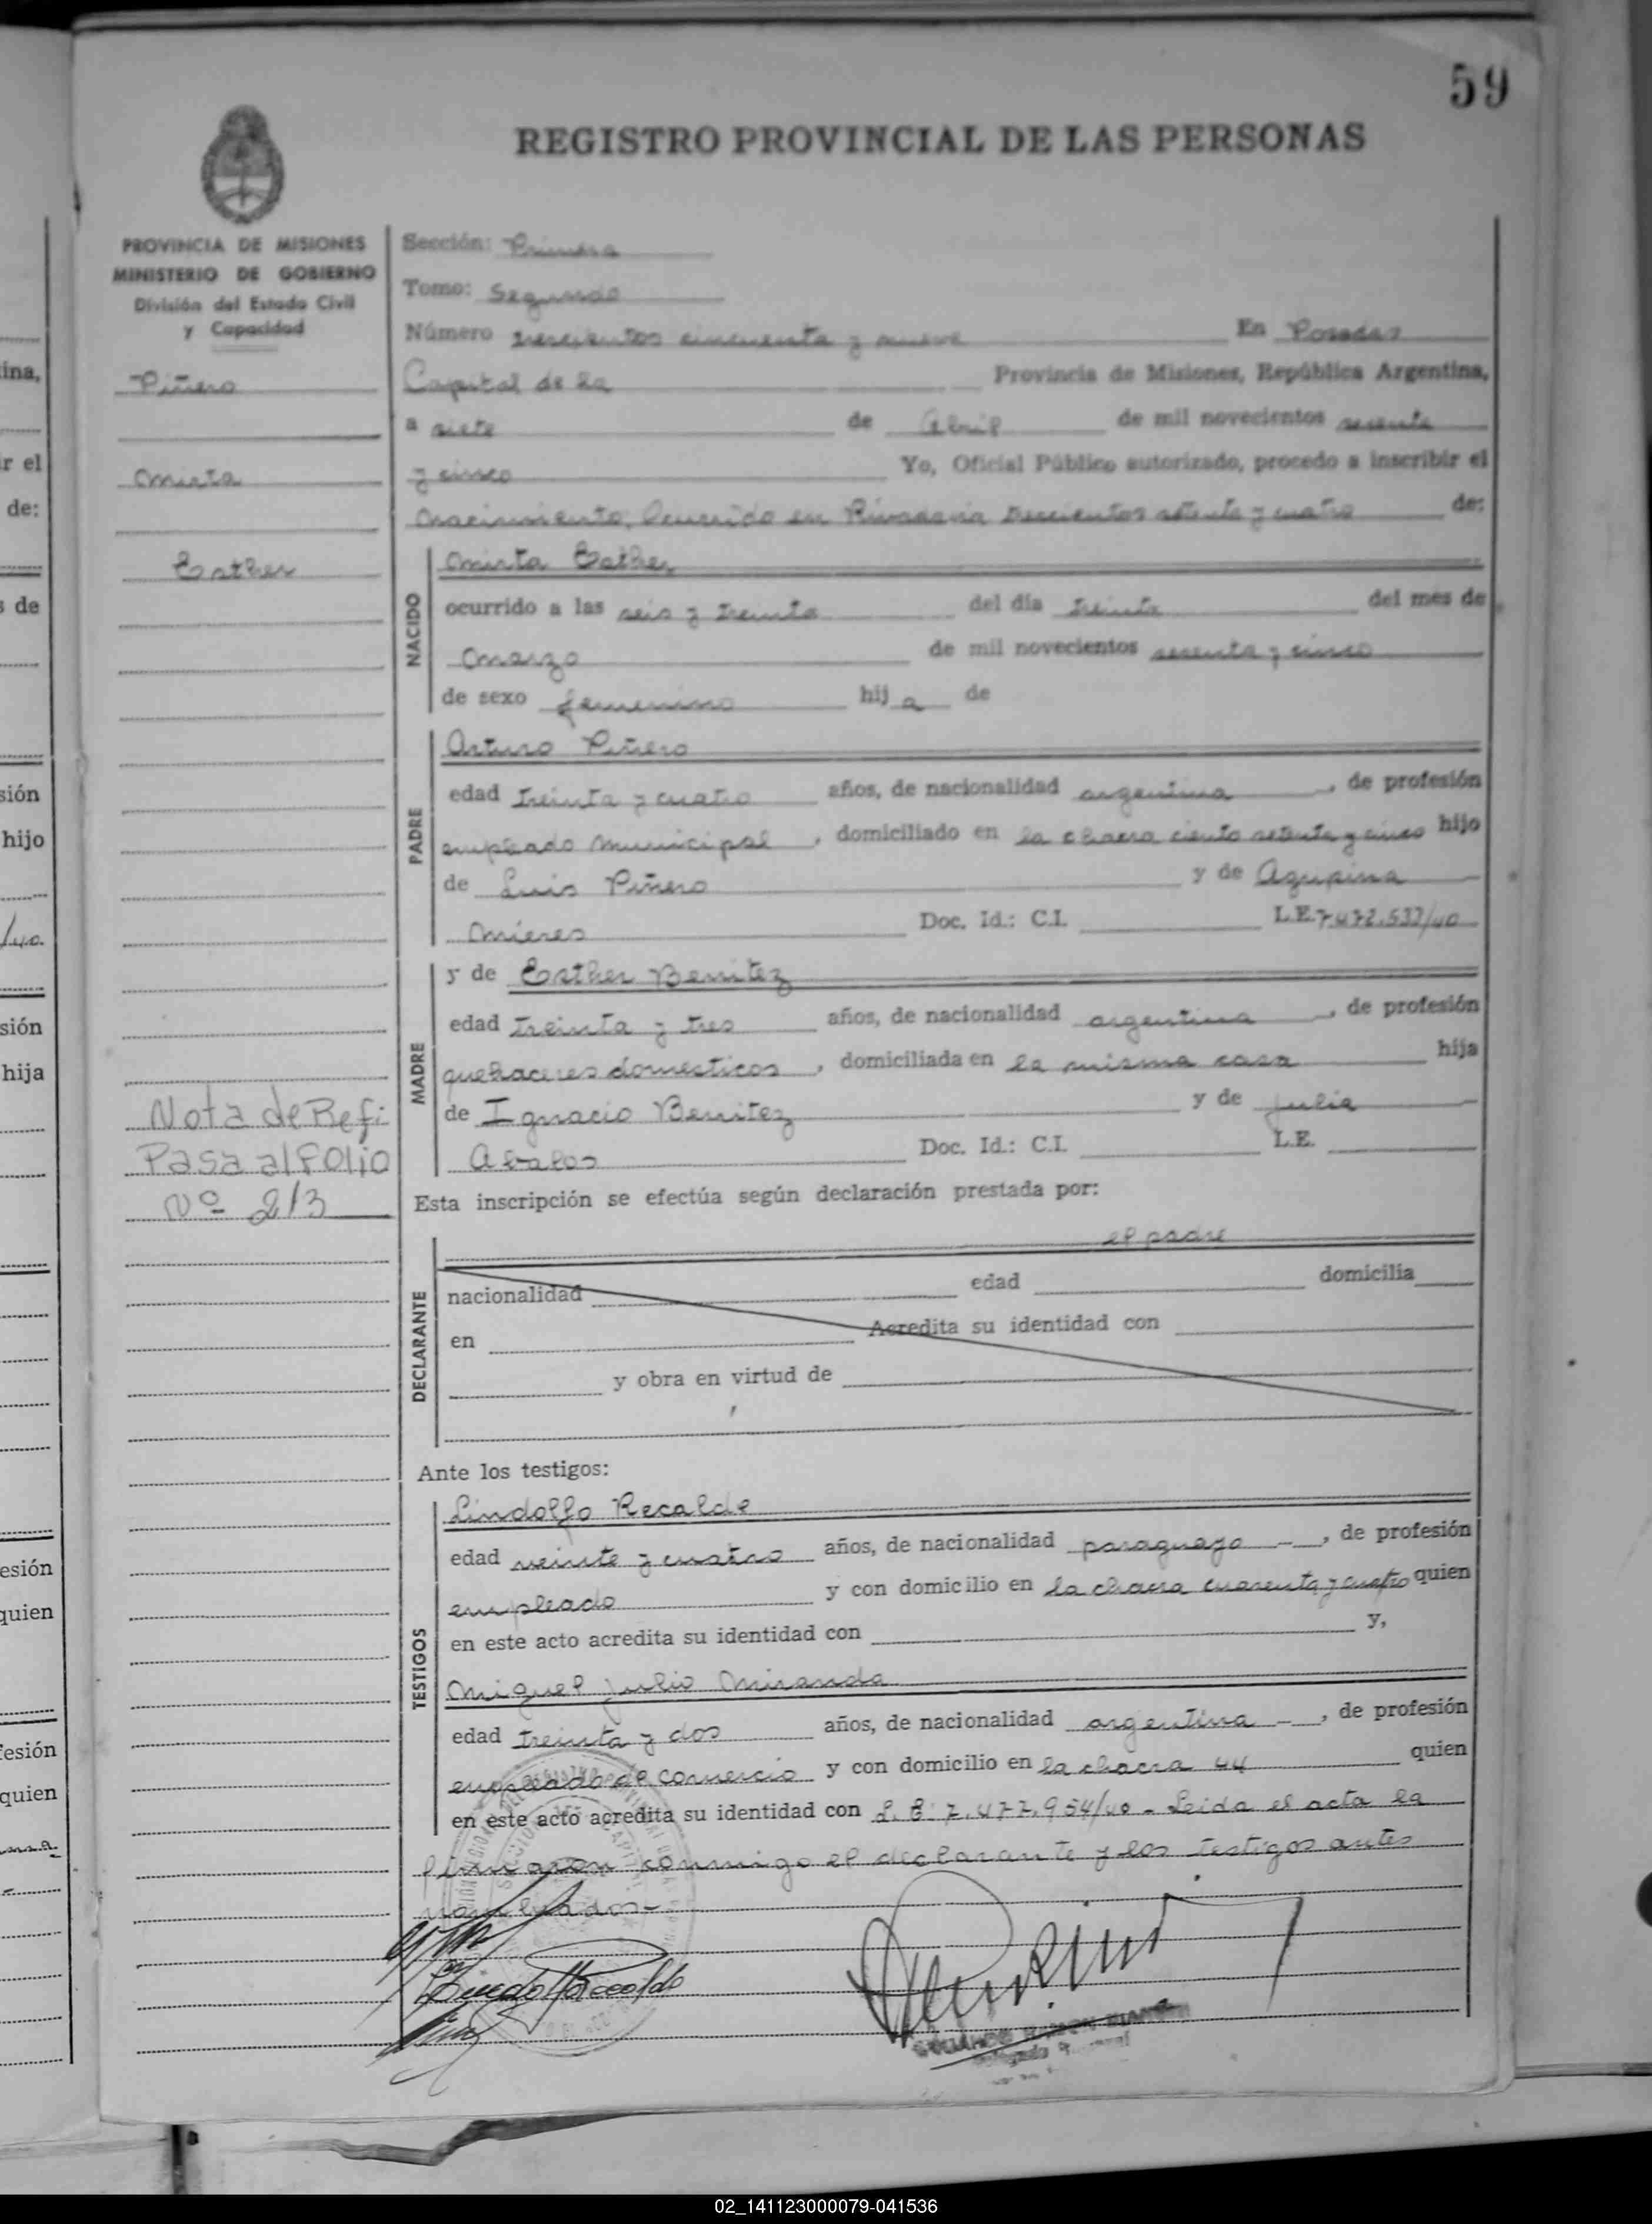 59
REGISTRO PROVINCIAL DE LAS PERSONAS
PROVINCIA DE MISIONES
MINISTERIO DE GOBIERNO
División del Estado Civil
y Capacidad
Piñero
Mirta
Esther
Nota de Refi
Pasa al Folio
Nº 213
Sección: Primera
Tomo: Segundo
Número trescientos cincuenta y nueve En Posadas
Capital de la Provincia de Misiones, República Argentina,
a siete de Abril de mil novecientos sesenta
y cinco Yo, Oficial Público autorizado, procedo a inscribir el
Nacimiento; Ocurrido en Rivadavia trescientos setenta y cuatro de:
NACIDO
Mirta Esther
ocurrido a las seis y treinta del día treinta del mes de
Marzo de mil novecientos sesenta y cinco
de sexo femenino hija de
PADRE
Arturo Piñero
edad treinta y cuatro años, de nacionalidad argentina, de profesión
empleado municipal, domiciliado en la chacra ciento setenta y cinco hijo
de Luis Piñero y de Agripina
Mieres Doc. Id.: C.I. L.E. 7.472.537/40
MADRE
y de Esther Benitez
edad treinta y tres años, de nacionalidad argentina, de profesión
quehaceres domesticos, domiciliada en la misma casa hija
de Ignacio Benitez y de Julia
Abalos Doc. Id.: C.I. L.E.
Esta inscripción se efectúa según declaración prestada por:
el padre
DECLARANTE
nacionalidad edad domicilia
en Acredita su identidad con
y obra en virtud de
Ante los testigos:
TESTIGOS
Lindolfo Recalde
edad veinte y cuatro años, de nacionalidad paraguayo -, de profesión
empleado y con domicilio en la chacra cuarenta y cuatro quien
en este acto acredita su identidad con y,
Miguel Julio Miranda
edad treinta y dos años, de nacionalidad argentina -, de profesión
empleado de comercio y con domicilio en la chacra 44 quien
en este acto acredita su identidad con L.E: 7.477.954/40 - Leida el acta la
firmaron conmigo el declarante y los testigos antes
nombrados-
02_141123000079-041536